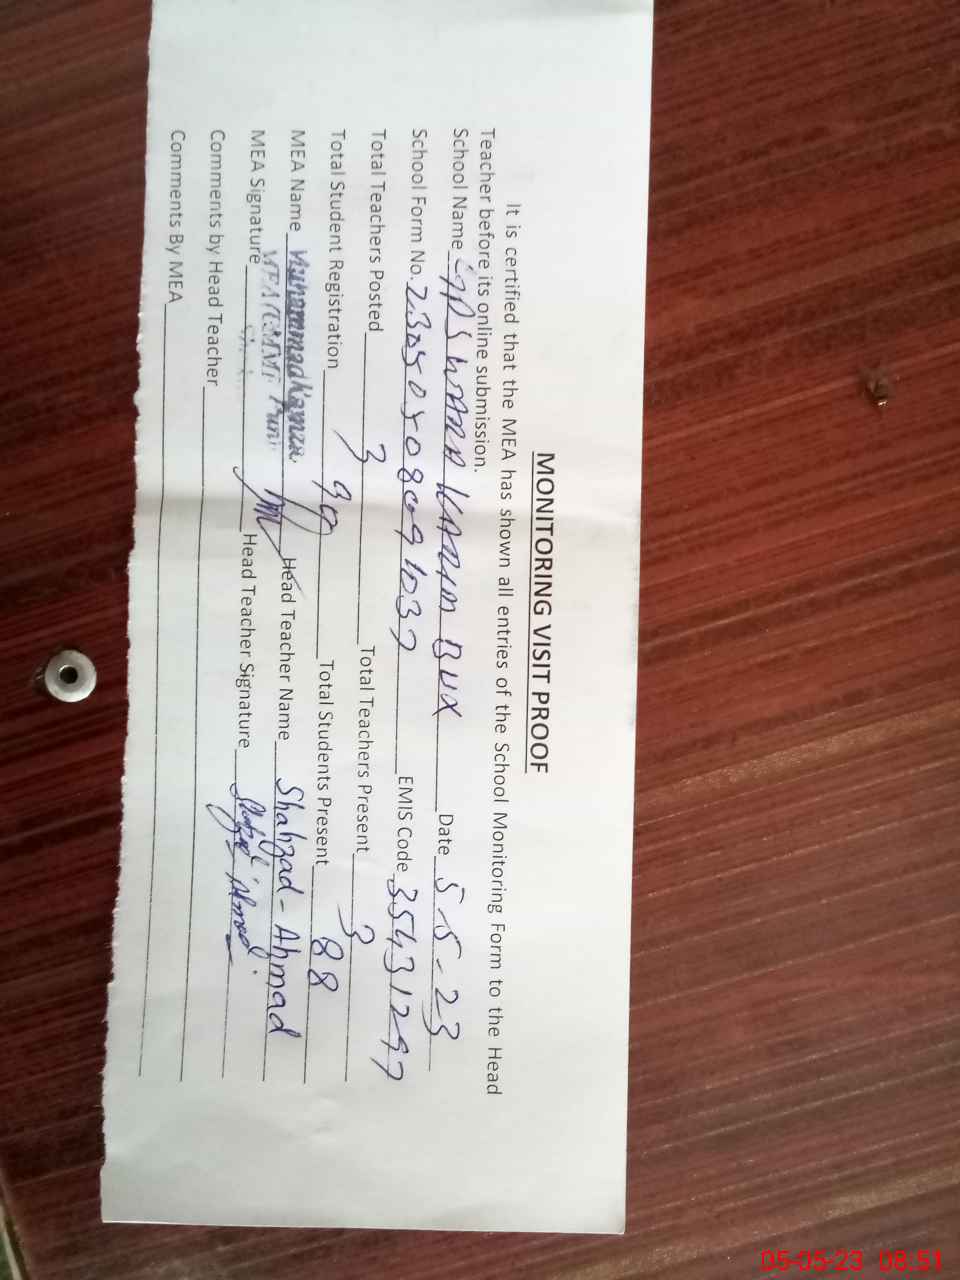 MONITORING VISIT PROOF
It is certified that the MEA has shown all entries of the School Monitoring Form to the Head
Teacher before its online submission.
School Name GPS WARA KARIM BUX Date 5-5-23
School Form No. EMIS Code 35431297
Total Teachers Posted 3 Total Teachers Present 3
Total Student Registration 99 Total Students Present 88
MEA Name Muhammad Kamran Head Teacher Name Shahzad-Ahmad
MEA Signature MEA Head Teacher Signature Shahzad Ahmad
Comments by Head Teacher
Comments By MEA
05-05-23 08:51